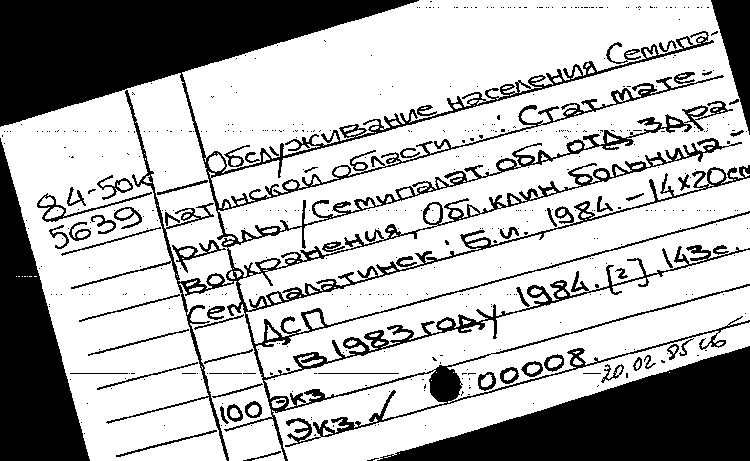 84-50к
5639
Обслуживание населения Семипа-
латинской области ... : Стат. мате-
риалы / Семипалат. обл. отд. здра-
воохранения, Обл. клин. больница. -
Семипалатинск : Б.и., 1984. - 14х20см
ДСП
... В 1983 году. 1984. [2], 143с.
100 экз.
Экз. ✓ 00008.
20.02.85 сб